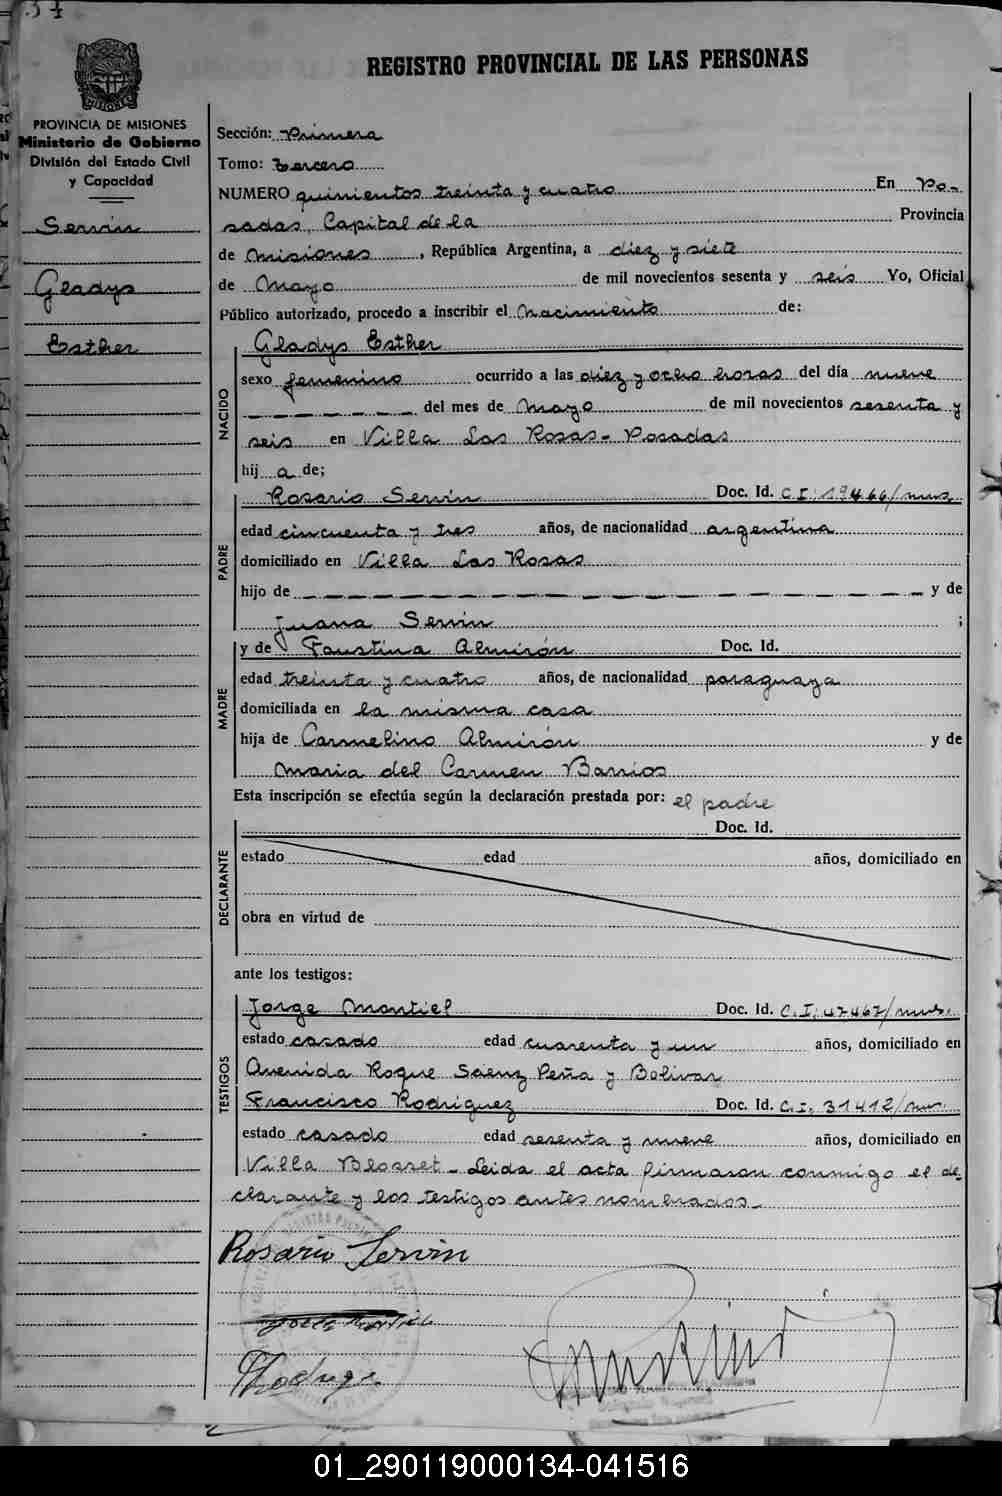 REGISTRO PROVINCIAL DE LAS PERSONAS
MISIONES
PROVINCIA DE MISIONES
Ministerio de Gobierno
División del Estado Civil
y Capacidad
Servin
Gladys
Esther
Sección: Primera
Tomo: tercero
NUMERO quinientos treinta y cuatro En Po-
sadas, Capital de la Provincia
de Misiones, República Argentina, a diez y siete
de Mayo de mil novecientos sesenta y seis Yo, Oficial
Público autorizado, procedo a inscribir el Nacimiento de:
NACIDO
Gladys Esther
sexo femenino ocurrido a las diez y ocho horas del día nueve
del mes de Mayo de mil novecientos sesenta y
seis en Villa Las Rosas - Posadas
hij a de;
PADRE
Rosario Servin Doc. Id. C.I: 19466/mns.
edad cincuenta y tres años, de nacionalidad argentina
domiciliado en Villa Las Rosas
hijo de y de
Juana Servin ;
MADRE
y de Faustina Almirón Doc. Id.
edad treinta y cuatro años, de nacionalidad paraguaya
domiciliada en la misma casa
hija de Carmelino Almirón y de
Maria del Carmen Barrios
Esta inscripción se efectúa según la declaración prestada por: el padre
DECLARANTE
Doc. Id.
estado edad años, domiciliado en
obra en virtud de
ante los testigos:
TESTIGOS
Jorge Montiel Doc. Id. C.I: 47467/mns.
estado casado edad cuarenta y un años, domiciliado en
Avenida Roque Saenz Peña y Bolivar
Francisco Rodriguez Doc. Id. C.I. 31412/mns.
estado casado edad sesenta y nueve años, domiciliado en
Villa Blosset - Leida el acta firmaron conmigo el de-
clarante y los testigos antes nombrados.-
Rosario Servin
01_290119000134-041516